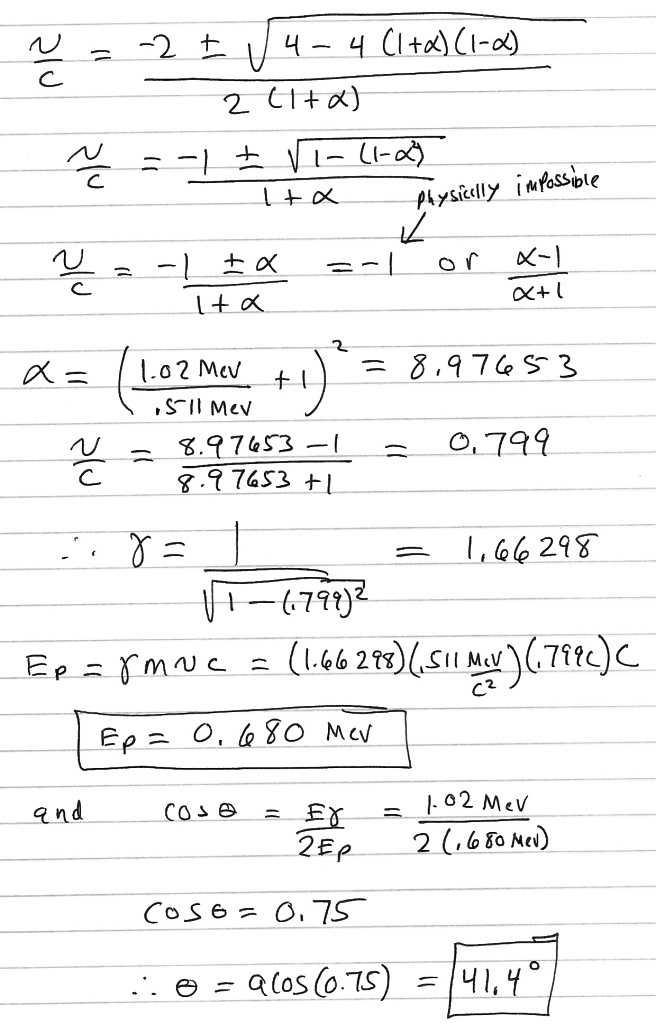 v/c = (-2 ± √(4 - 4(1+α)(1-α))) / (2(1+α))
v/c = (-1 ± √(1-(1-α²))) / (1+α)
physically impossible
v/c = (-1 ± α) / (1+α) = -1 or (α-1)/(α+1)
α = (1.02 MeV / .511 MeV + 1)² = 8.97653
v/c = (8.97653 - 1) / (8.97653 + 1) = 0.799
∴ γ = 1 / √(1-(.799)²) = 1.66298
Ep = γmvc = (1.66298)(.511 MeV/c²)(.799c)c
Ep = 0.680 MeV
and cosθ = Eγ / 2Ep = 1.02 MeV / 2(.680 MeV)
cosθ = 0.75
∴ θ = acos(0.75) = 41.4°